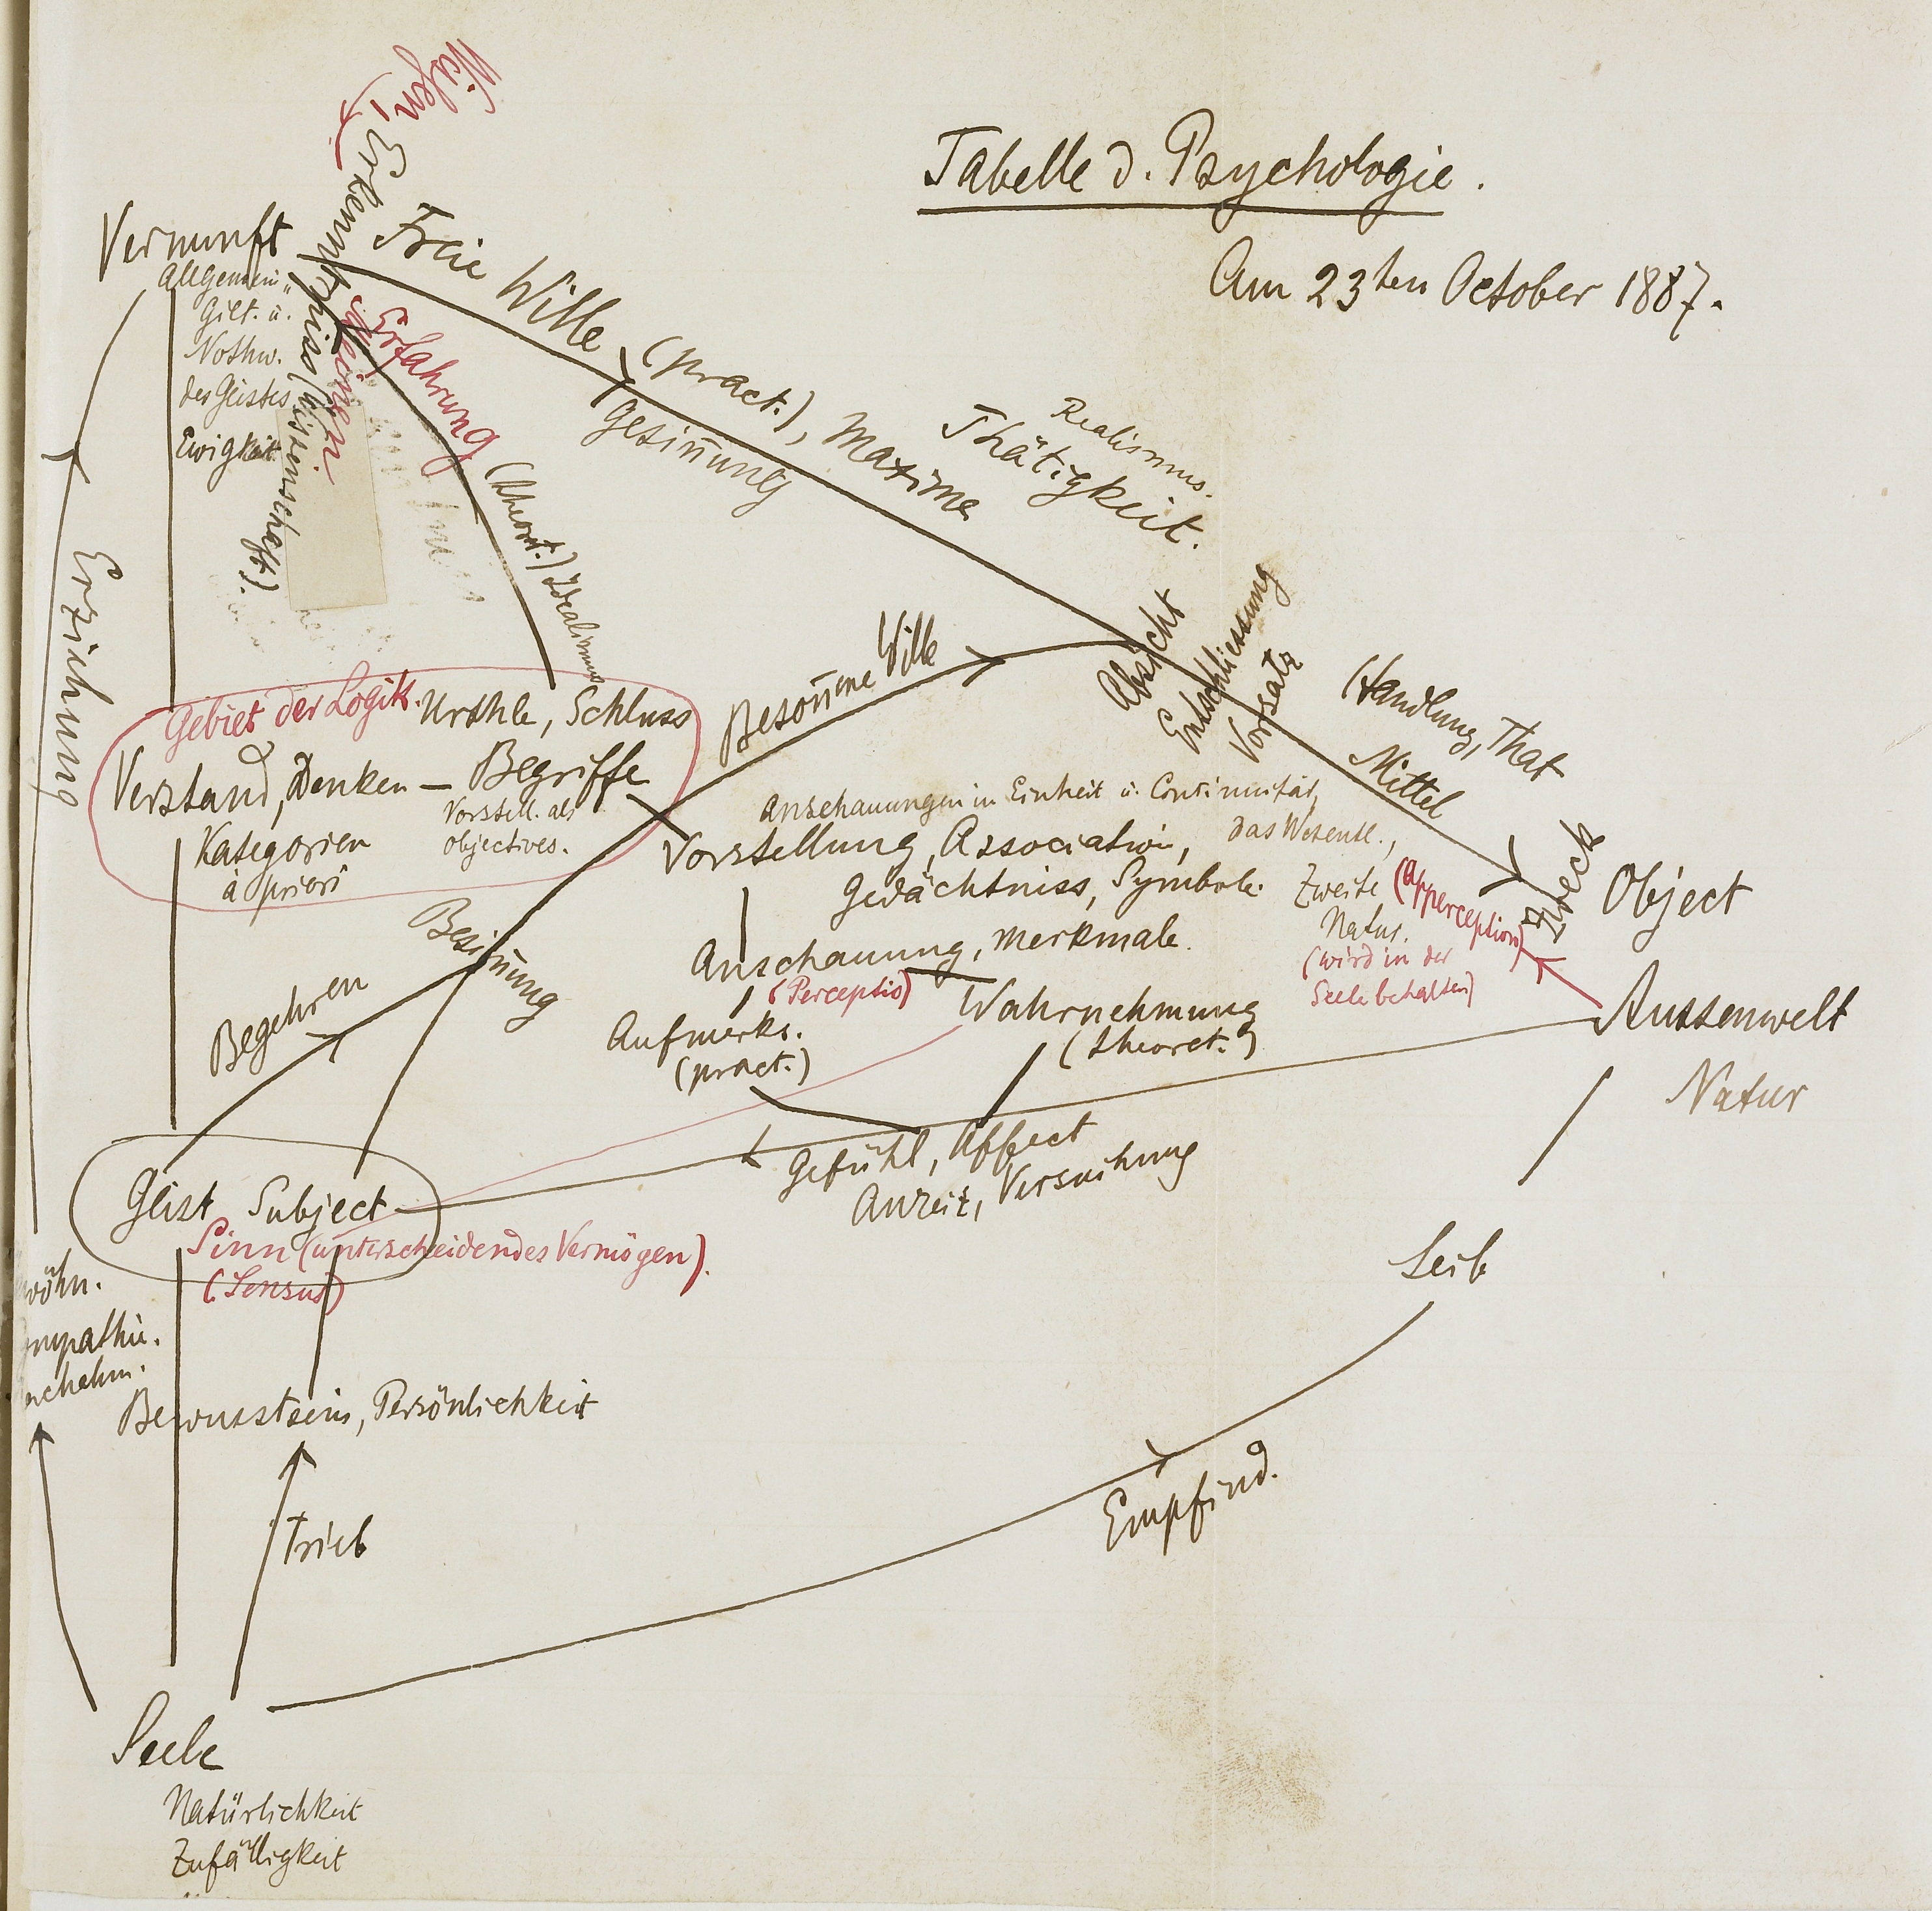 Tabelle d. Psychologie.
Am 23ten October 1887.
Wissen
Erkenntniss (Wissenschaft).
Vernunft
Allgemein"
Gilt. u.
Nothw.
des Geistes
Ewigkeit
Freie Wille (pract.), Maxime
Gesin̄ung
Realismus.
Thätigkeit.
Erfahrung (theoret.) Idealismus
Erziehung
Absicht
Entschliessung
Vorsatz
Handlung, That
Mittel
Zweck
Object
Beson̄ene Wille
Gebiet der Logik.
Urthle, Schluss
Verstand, Denken — Begriffe
Vorstell. als
objectives.
Kategorien
à priori
Anschauungen in Einheit u. Continuität,
das Wesentl.,
Vorstellung, Association,
Gedächtniss, Symbole
Zweite
Natur.
(Apperception)
(wird in der
Seele behalten)
Besin̄ung
Begehren
Anschauung, Merkmale.
(Perceptio)
Wahrnehmung
(theoret.)
Aufmerks.
(pract.)
Aussenwelt
Natur
Gefühl, Affect
Anreiz, Versuchung
Geist Subject
Sinn (unterscheidendes Vermögen).
(Sensus)
Leib
wöhn.
mpathie.
achahm.
Bewusstsein, Persönlichkeit
Trieb
Empfind.
Seele
Natürlichkeit
Zufälligkeit